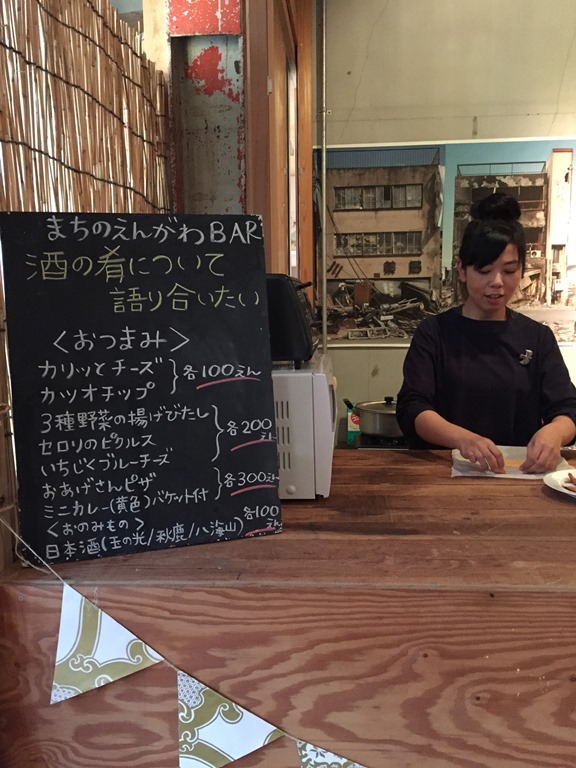 まちのえんがわBAR
酒の肴について
語り合いたい
<おつまみ>
カリッとチーズ
カツオチップ
各100えん
3種野菜の揚げびたし
セロリのピクルス
いちじくブルーチーズ
各200えん
おあげさんピザ
ミニカレー(黄色)バケット付
各300えん
<おのみもの>
日本酒(玉の光/秋鹿/八海山)
各100えん